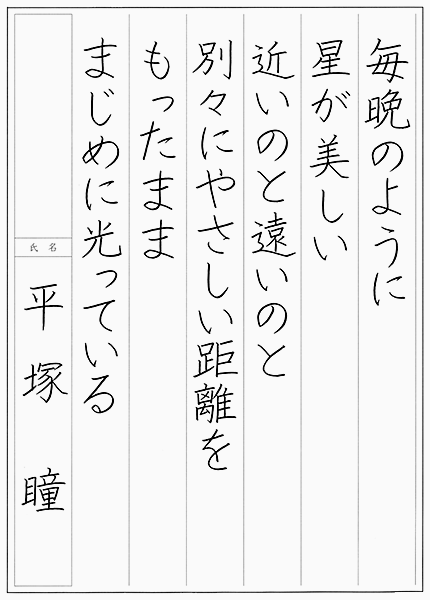 毎晩のように
星が美しい
近いのと遠いのと
別々にやさしい距離を
もったまま
まじめに光っている
氏名
平塚瞳